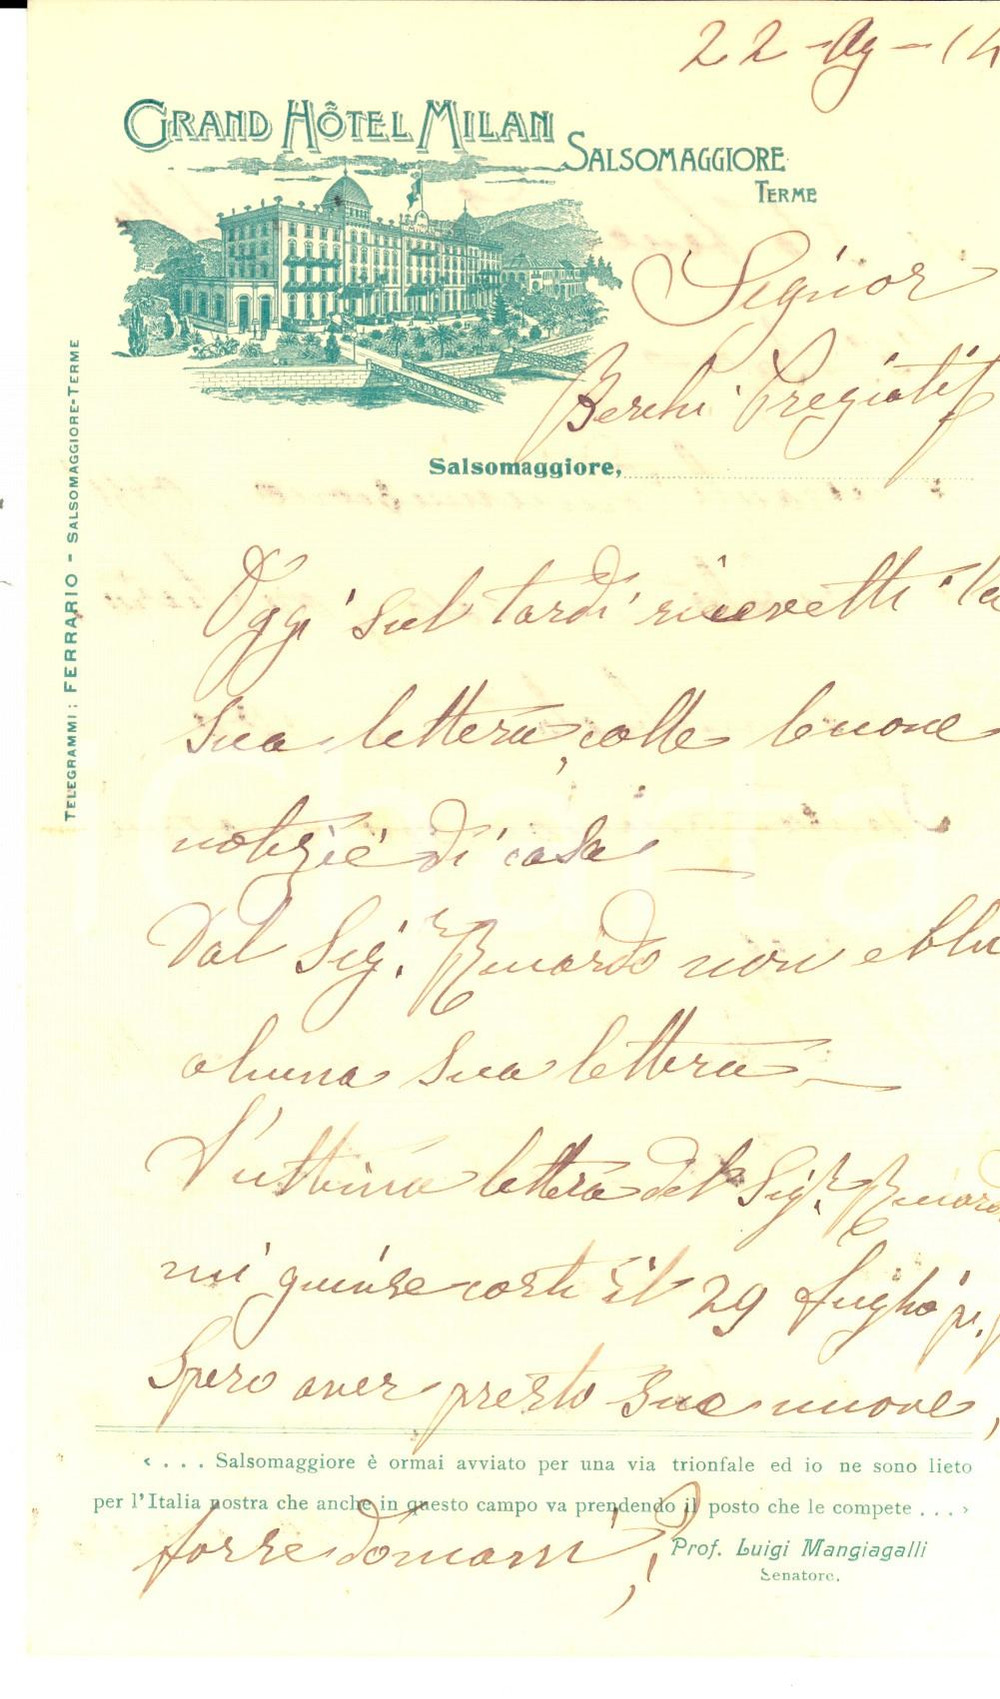 22 - Ag - 14
GRAND HÔTEL MILAN
SALSOMAGGIORE
TERME
Signor
Berchi Pregiatis
Salsomaggiore,
TELEGRAMMI: FERRARIO - SALSOMAGGIORE-TERME
Oggi sul tardi ricevetti la
sua lettera, colle buone
notizie di casa —
Dal Sig.r Ricardo non ebbi
alcuna sua lettera —
L'ultima lettera del Sig.r
mi giunse costì il 29 luglio p.p
Spero aver presto sue nuove,
« . . . Salsomaggiore è ormai avviato per una via trionfale ed io ne sono lieto
per l'Italia nostra che anche in questo campo va prendendo il posto che le compete . . . »
forse domani,
Prof. Luigi Mangiagalli
Senatore.